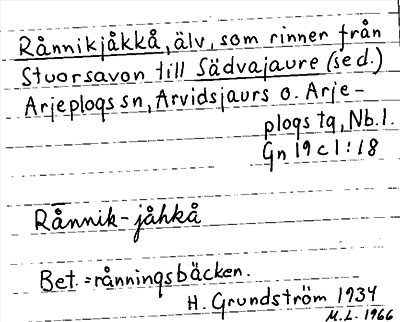 Rånnikjåkkå, älv, som rinner från
Stuorsavon till Sädvajaure (se d.)
Arjeplogs sn, Arvidsjaurs o. Arje-
plogs tg, Nb. l.
Gn 19 c 1:18
Rånnik-jåhkå
Bet. = rånningsbäcken.
H. Grundström 1934
M.L. 1966